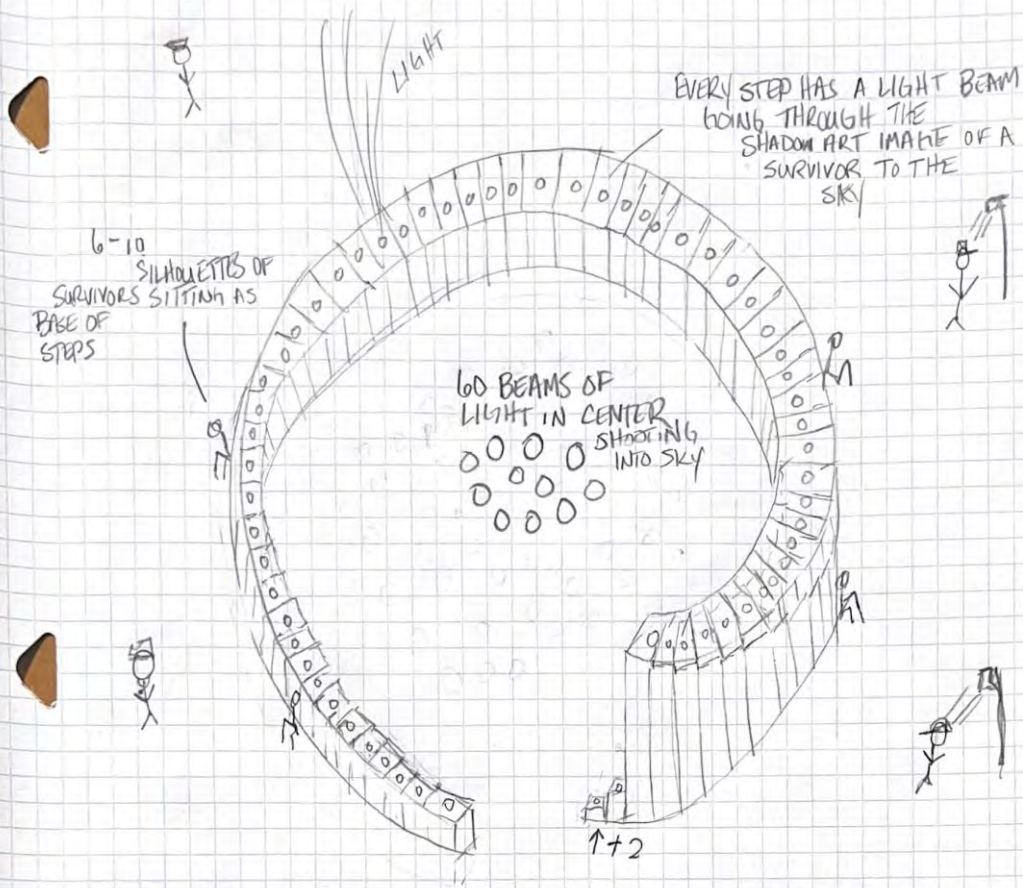 LIGHT
EVERY STEP HAS A LIGHT BEAM
GOING THROUGH THE
SHADOW ART IMAGE OF A
SURVIVOR TO THE
SKY
6-10
SILHOUETTES OF
SURVIVORS SITTING AS
BASE OF
STEPS
60 BEAMS OF
LIGHT IN CENTER
SHOOTING
INTO SKY
↑+2